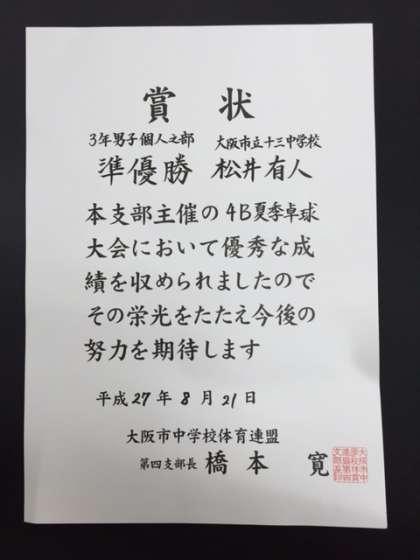 賞 状
3年男子個人之部 大阪市立十三中学校
準優勝 松井有人
本支部主催の4B夏季卓球
大会において優秀な成
績を収められましたので
その栄光をたたえ今後の
努力を期待します
平成27年8月21日
大阪市中学校体育連盟
第四支部長 橋本 寛